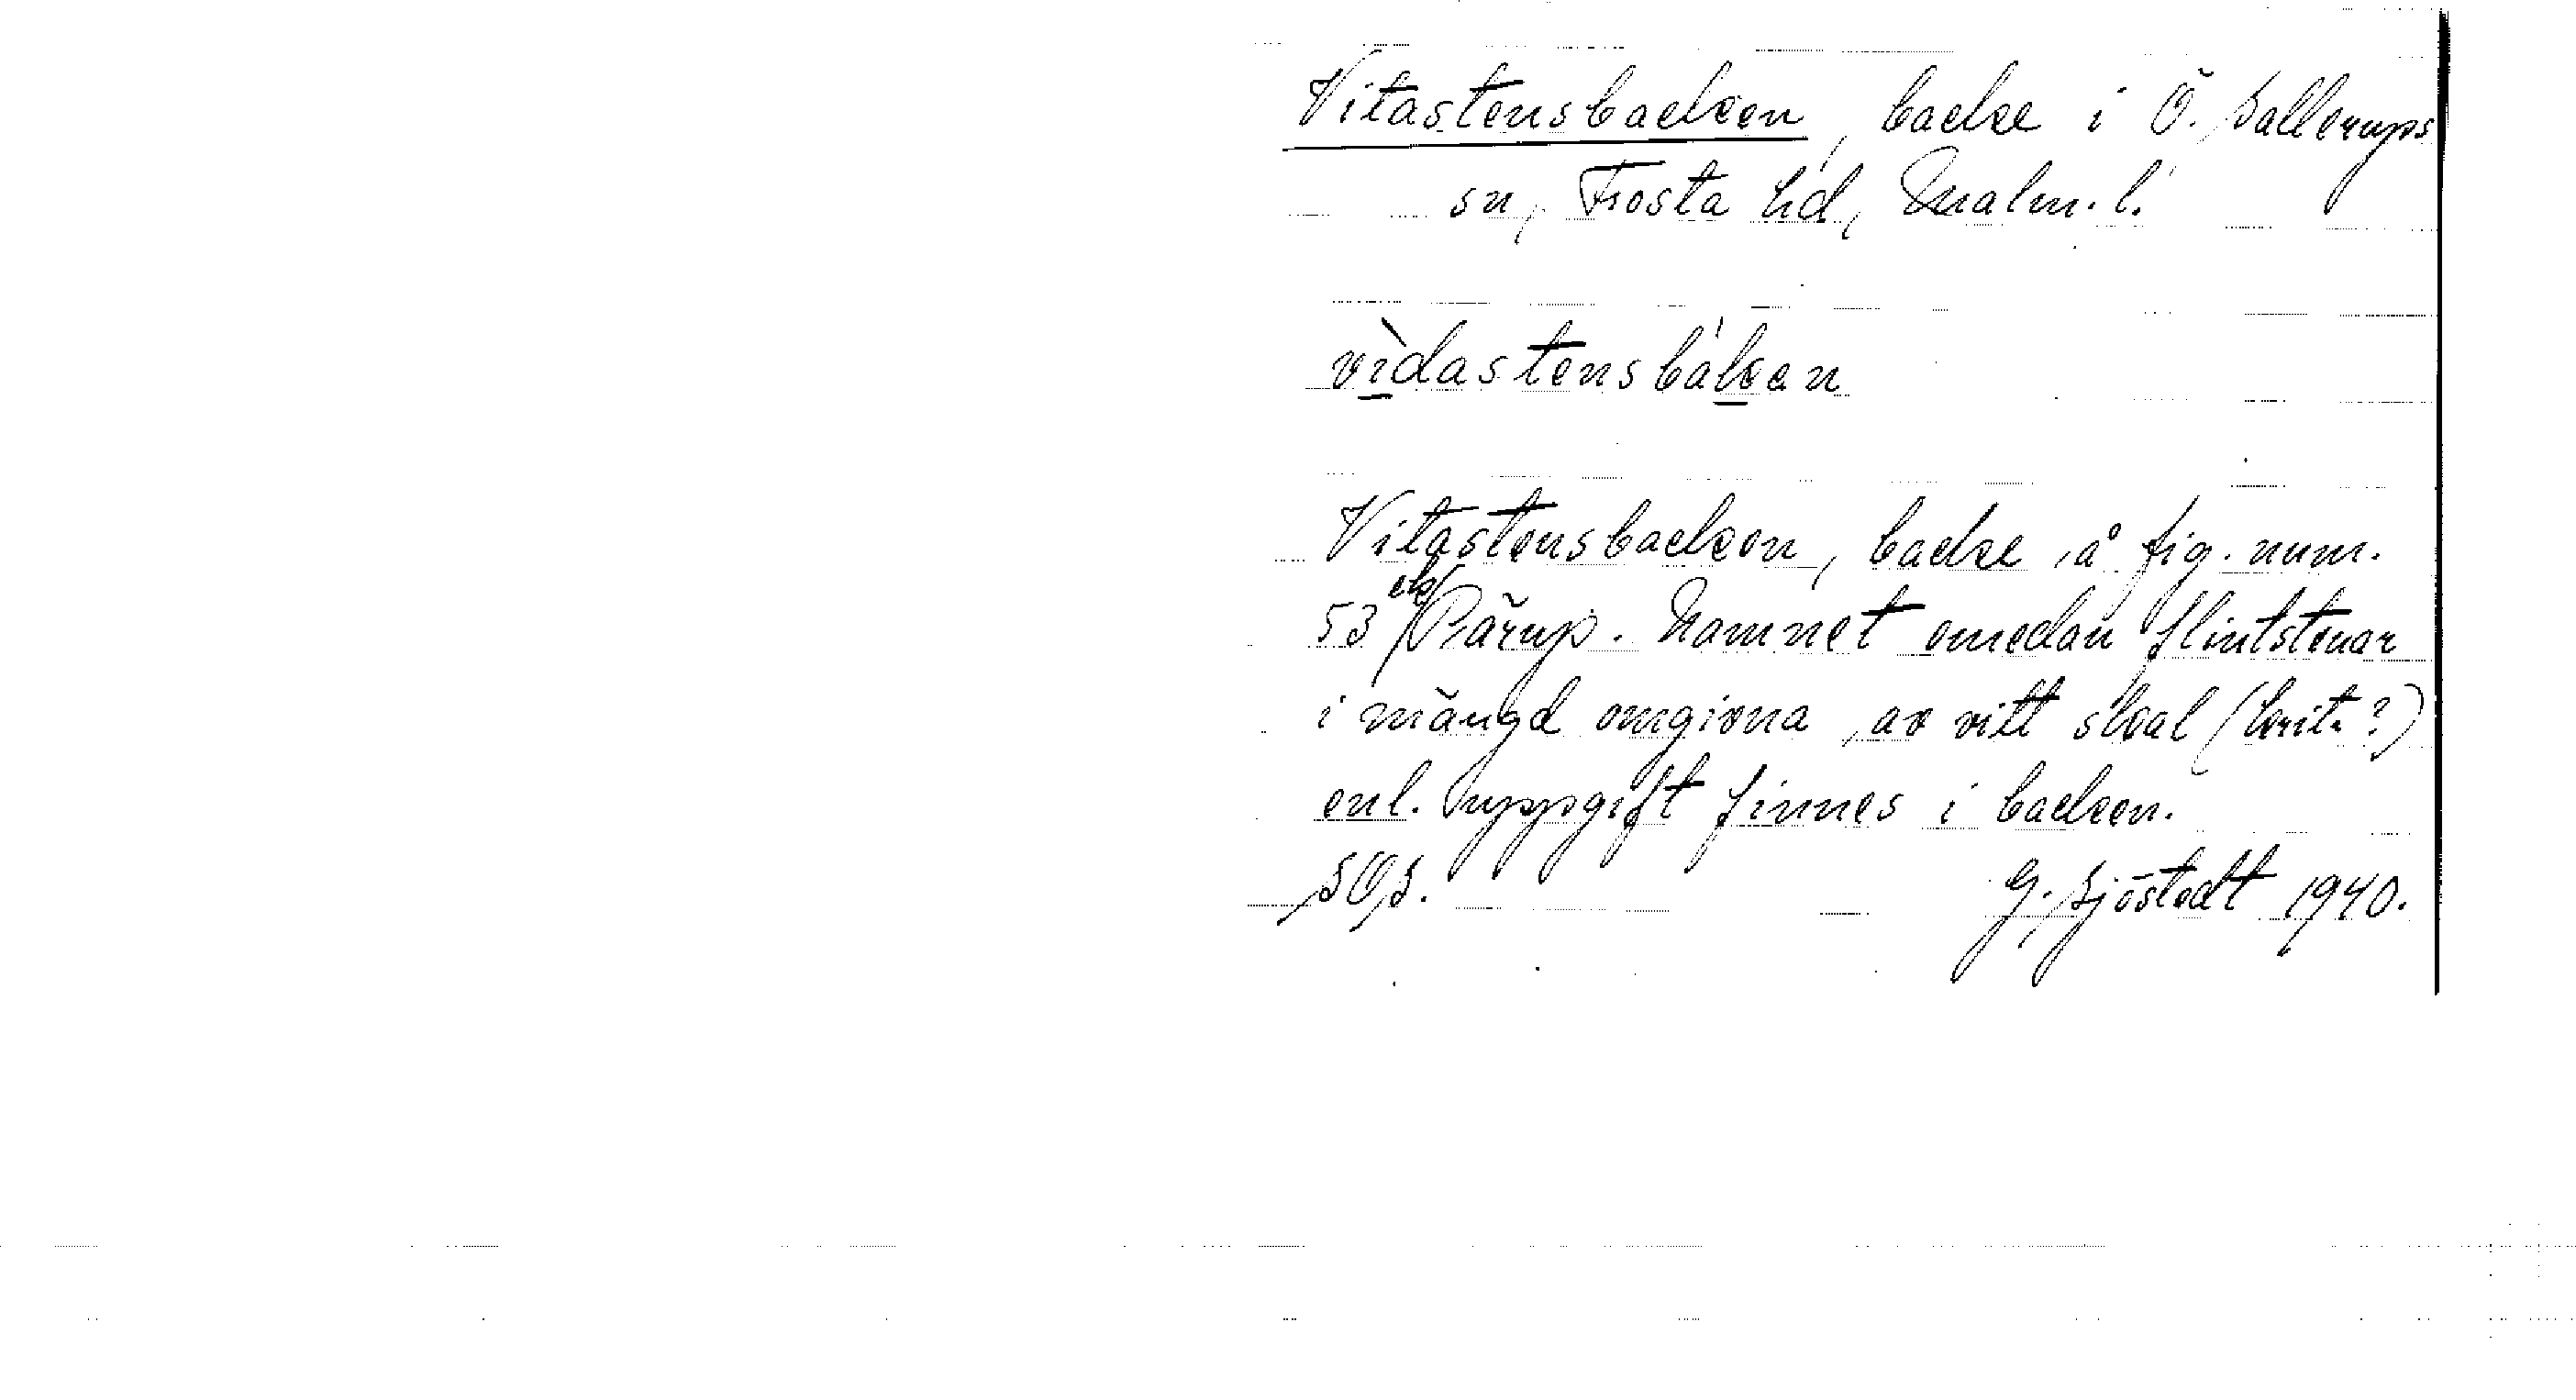 Vitastensbacken, backe i Ö. Sallerups
sn, Frosta hd, Malm. l.
vìdastensbákan
Vitastensbacken, backe å fig. num.
53 ek/Pärup. Namnet emedan flintstenar
i mängd omgivna av vitt skal (krita?)
enl. uppgift finnes i backen.
SOS. G. Sjöstedt 1940.